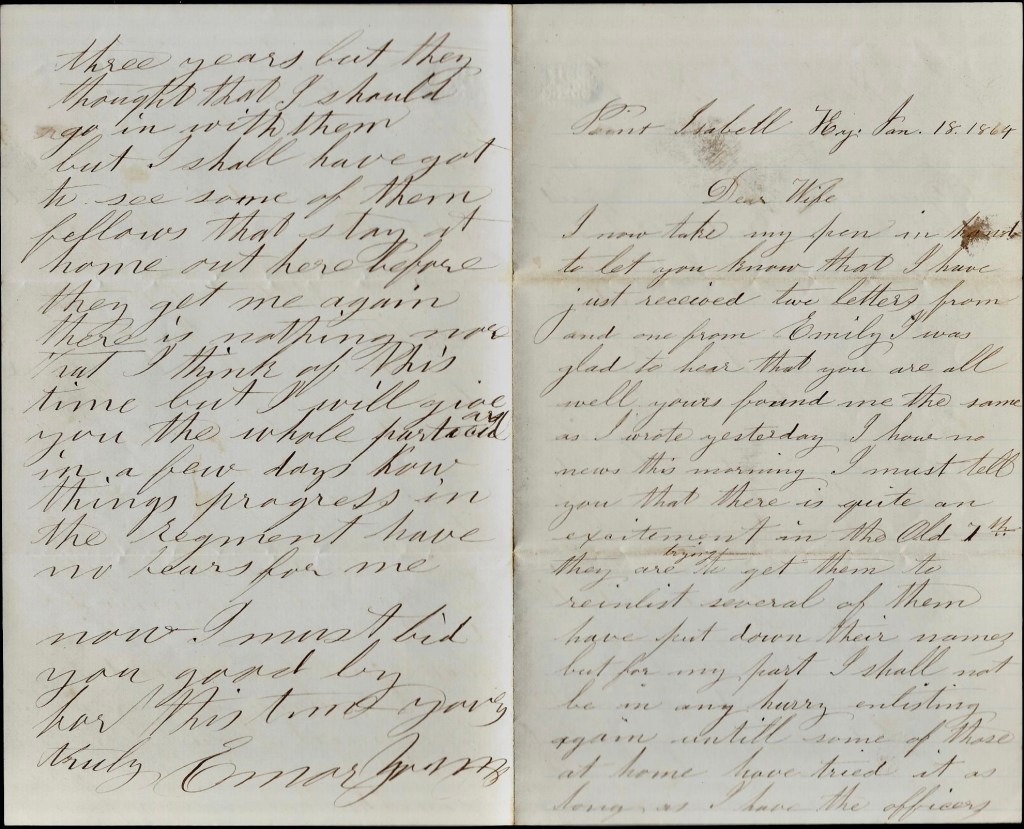 Point Isabell Ky. Jan. 18. 1864
Dear Wife
I now take my pen in hand
to let you know that I have
just received two letters from
and one from Emily I was
glad to hear that you are all
well yours found me the same
as I wrote yesterday I have no
news this morning I must tell
you that there is quite an
exsitement in the Old 7th
they are trying to get them to
reinlist several of them
have put down their names
but for my part I shall not
be in any hurry enlisting
again untill some of those
at home have tried it as
long as I have the officers
three years but they
thought that I should
go in with them
but I shall have got
to see some of them
fellows that stay at
home out here before
they get me again
there is nothing more
that I think of this
time but I will give
you the whole
in a few days how
things progress in
the regment have
no bears for me
now I must bid
you good by
for this time yours
truly